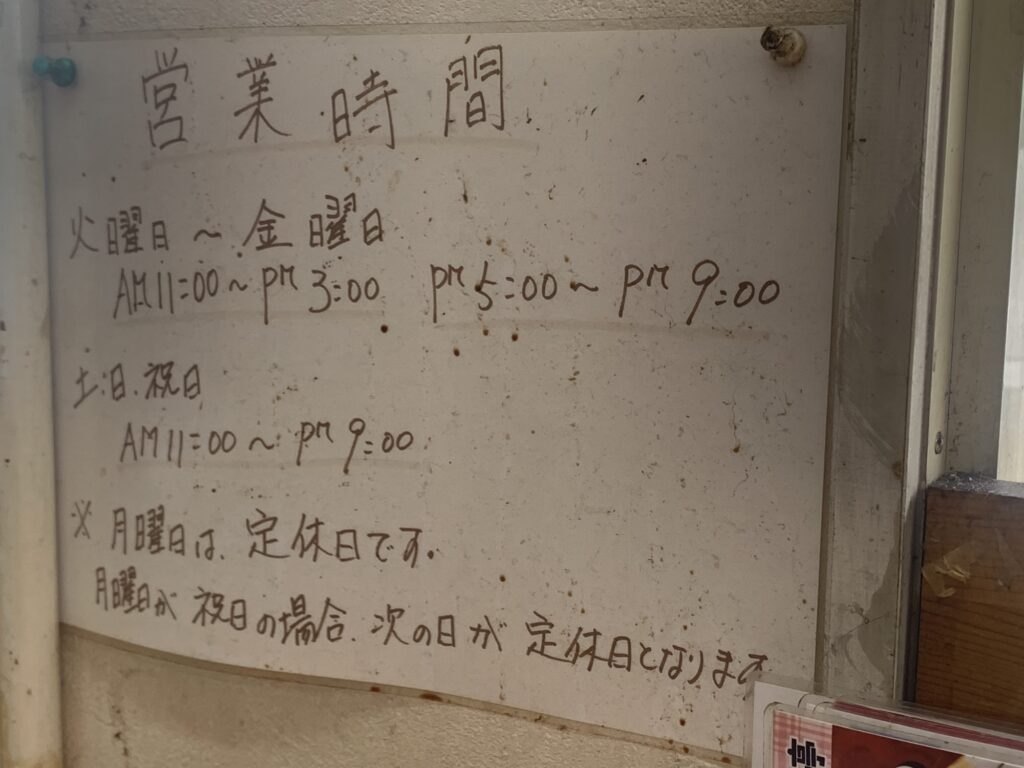 営業時間
火曜日～金曜日
AM11:00～PM3:00 PM5:00～PM9:00
土.日.祝日
AM11:00～PM9:00
※月曜日は、定休日です。
月曜日が祝日の場合、次の日が定休日となります